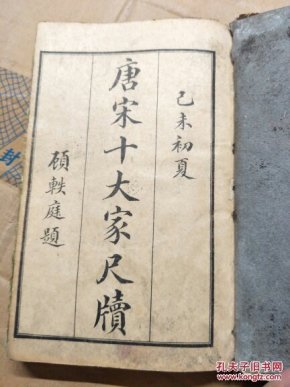 己未初夏
唐宋十大家尺牘
顧軼庭題
孔夫子旧书网